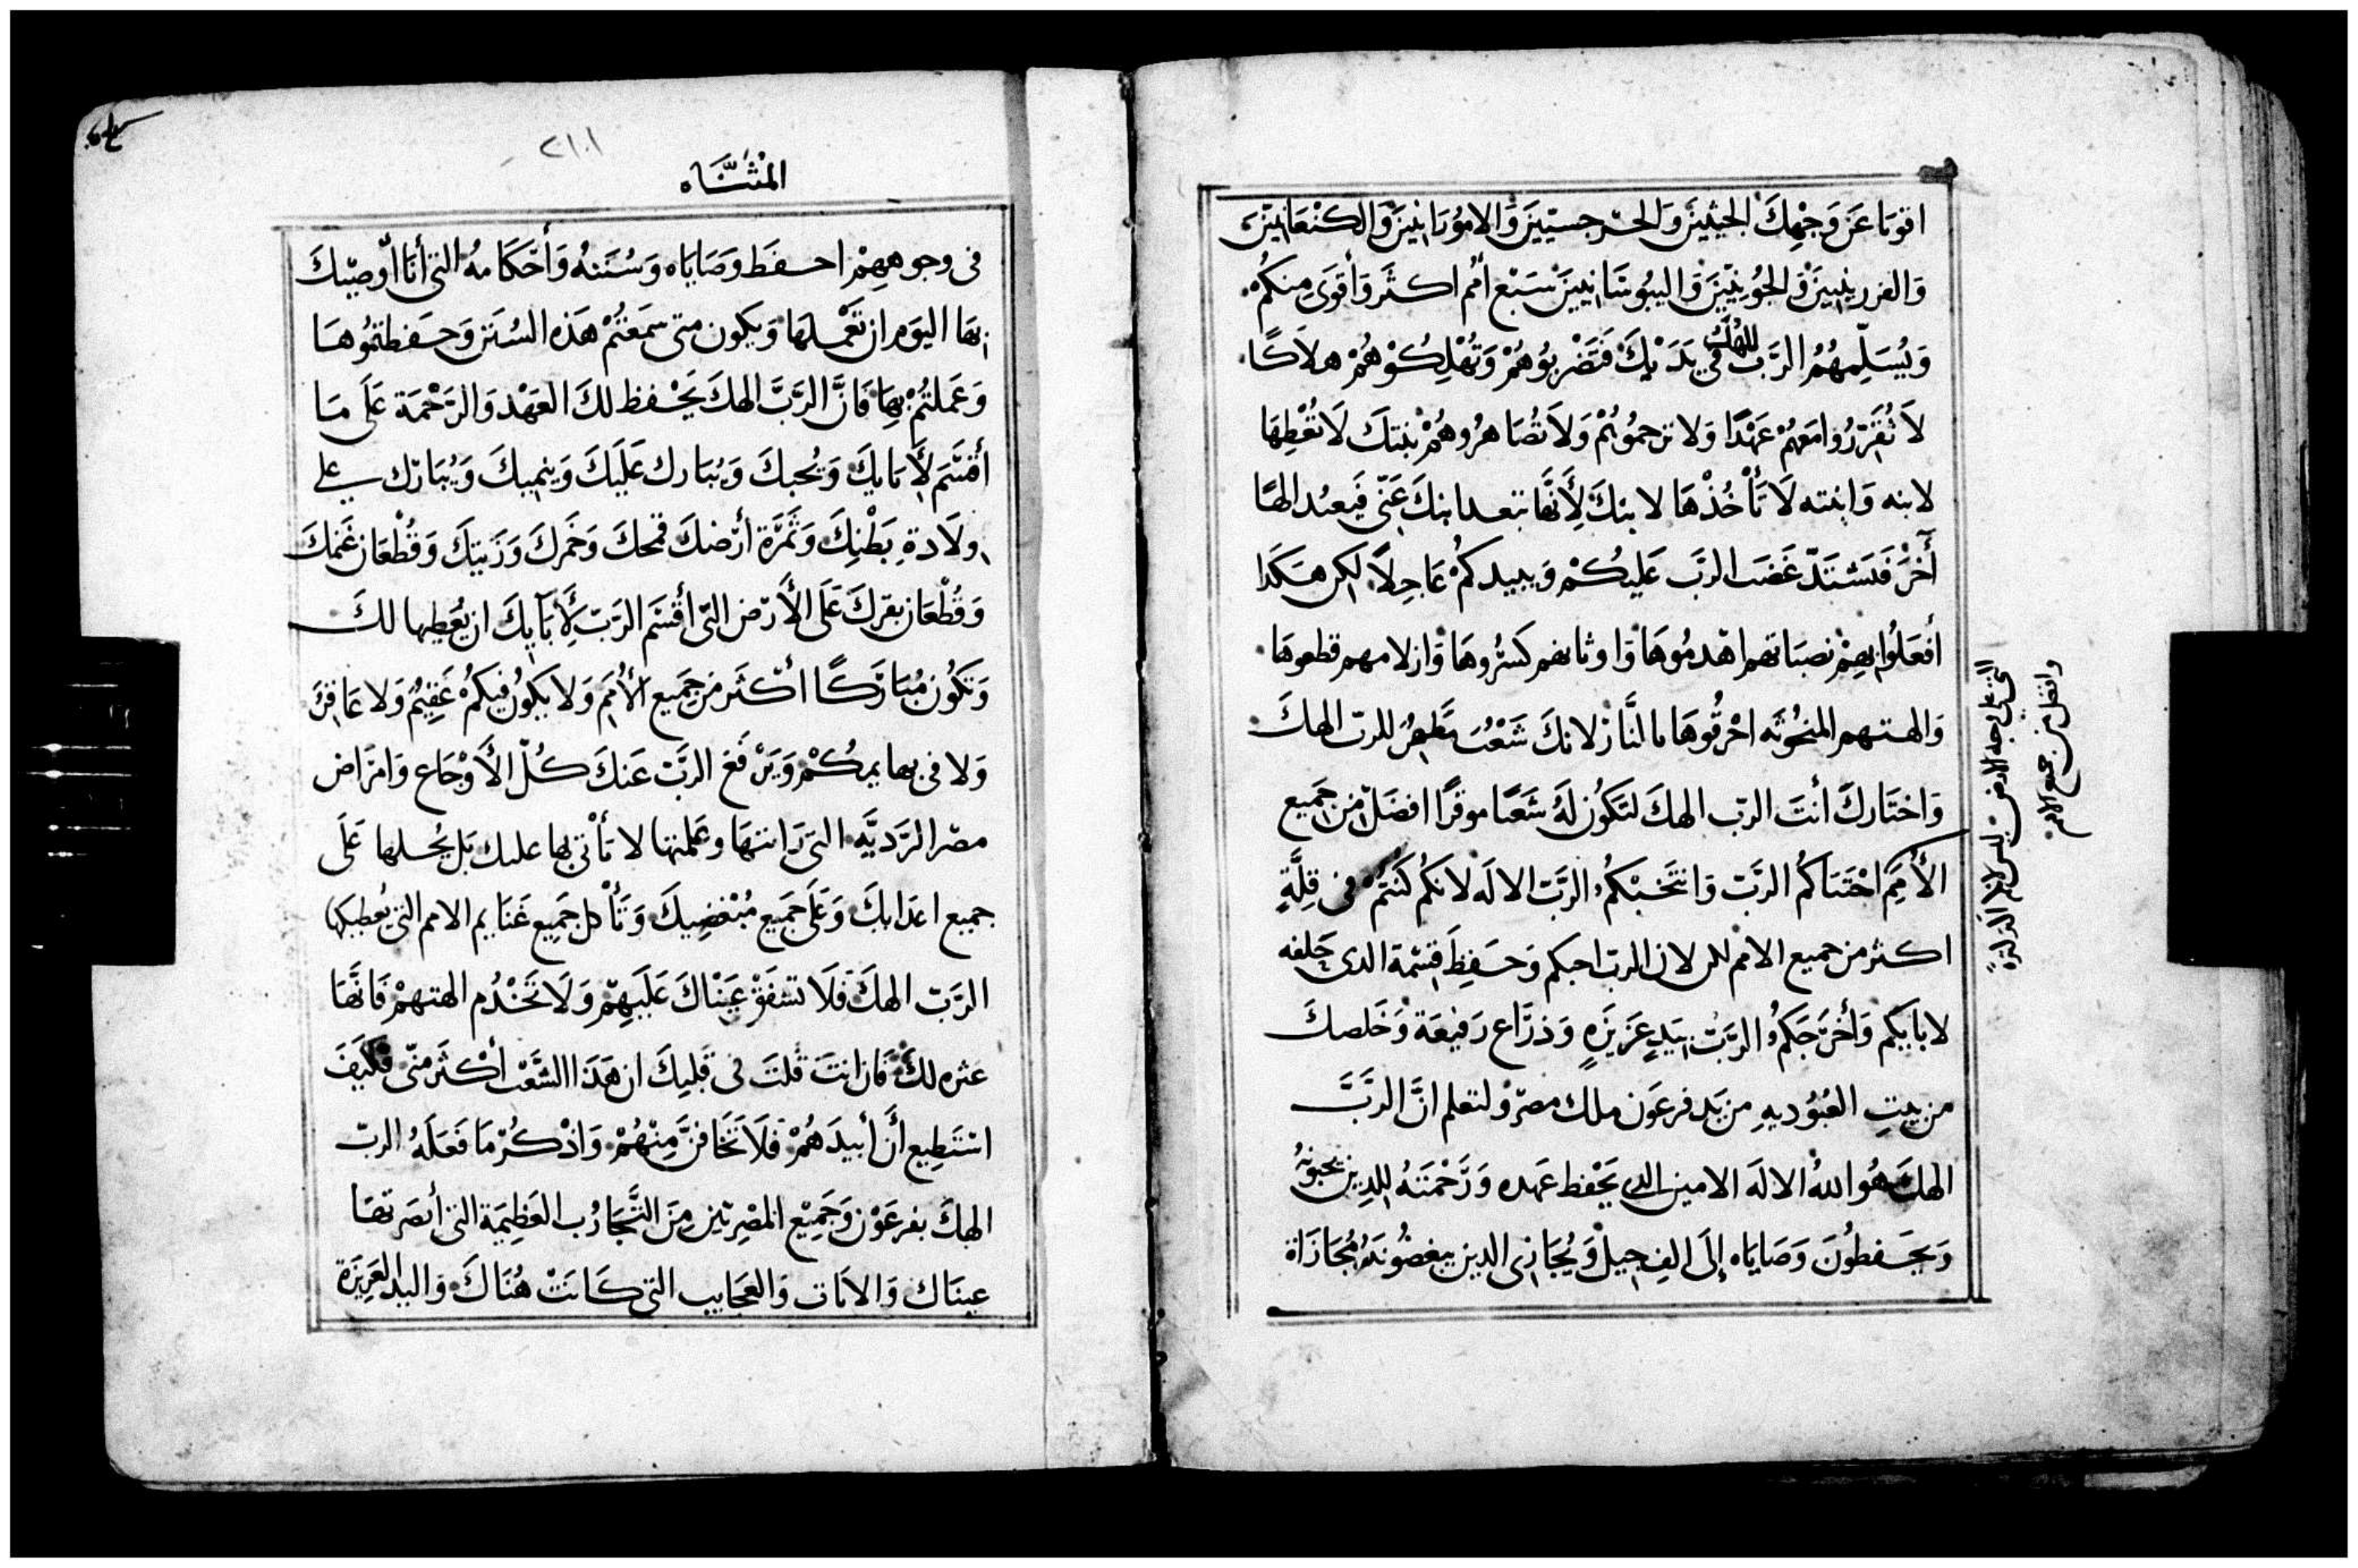 اقوىا عَن وَجْهِكَ الحيثيينَ وَالحرجسيّينَ وَالاموُرَانِينَ وَالكنْعَانيّينَ
وَالفرزينيينَ وَالحُوييّينَ وَاليبُوسَانيينَ سَبْع أمُم اكثَر وَأقوَى مِنكُم
وَيُسَلِّمهُمُ الرَبّ الهكَ في يَدَيكَ فَتَضْربُوهُمْ وَتُهْلِكُوْهُمْ هلاَكًا
لاَ تُقَرّرُوا مَعَهُمْ عَهْدًا وَلا ترحموُهُمْ وَلاَ تُصَاهرُوهُمْ بنتكَ لَا تُعْطِهَا
لابنه وَابنته لَا تَأْخُذْهَا لابنكَ لِأَنَّهَا تبعد ابنكَ عَنّي فَيعبُد الهًا
آخَرَ فَيَشتَدّ غَضَب الرَبّ عَليكُمْ وَيبيدكمُ عَاجِلاً لكن هَكَدا
أفعَلُوا بِهِمْ نصبَاتهم اهْدمُوهَا وَاوثانهم كَسرُوهَا وَازلامهم قطعوهَا
وَالهتهم المنحُوته احْرقُوهَا بالنَّار لانكَ شَعْب مَطهرُ للربّ الهكَ
وَاختَاركَ أنتَ الربّ الهكَ لتَكوُن لهُ شَعبًا موقرًا افضَل من جَميع
الأُمَمِ اجْتَبَاكُم الرَبّ وَانتَخبْكمُ الرَبّ الالَه لانَكُم كُنتُمُ في قِلَّةٍ
اكثر من جميع الامم لكن لان الربّ احبكم وَحَفِظَ قِسْمة الدى حَلفه
لابايكم وَأخرَجَكمُ الرَبّ بيَدٍ عَزيزَهٍ وَذرَاع رَفيعَة وَخَلصكَ
من بيتِ العُبُوديهِ من يَد فرعَون ملك مصرَ ولتعلم انَّ الرَبَّ
الهكَ هُو اللهُ الالَه الامين الدى يَحْفط عَهده وَرَحْمَتهُ للدِين يحبونهُ
وَيحَفطُونَ وَصَايَاه إلَى الفِ جيل وَيُجَازى الدين يبغضُونَهُ مُجَازَاة
التي على وجه الارض ليس لانكم
وافضل من جميع الامم
٢١٠١
المثنّاه
في وجوههِمْ احفَط وصَايَاه وَسُننهُ وَأحْكَامهُ التي أنَا أوصيْكَ
بهَا اليَوم ان تَعْملهَا وَيكون متى سمَعتُمْ هَذه السُنَن وَحَفطتمُوهَا
وَعَملتُمْ بهَا فَانَّ الرَبَّ الهكَ يَحْفظ لكَ العَهْد وَالرَحْمَة عَلَى مَا
أقسَم لأبَايكَ وَيُحبكَ وَيُبَارك عَلَيكَ وَينميكَ وَيُبَارك على
ولَادةِ بَطْنِكَ وَثَمَرَة أرْضكَ قمحكَ وَخَمركَ وَزَيتكَ وَقُطْعَان غَنمكَ
وَقُطْعَان بقركَ عَلَى الأَرْض التي أقْسَم الرَبّ لِأَبَآيكَ ان يُعَطِيها لكَ
وَتكُون مُبَارَكًا أكْثَر مَن جَميع الأُمَم وَلا يكوُن فيكمُ عَقِيمُ وَلا عَاقرَ
وَلا في بهايمكُمْ وَيَرْفَع الرَبّ عَنكَ كُلّ الأَوْجَاع وَامرَاض
مصْر الرَديَّه التي رَايتهَا وعَلمتها لا يَأْتي بها عليك بَل يُحلها عَلَى
جميع اعدَايكَ وَعَلَى جَميع مُبْغضِيكَ وَتَأْكل جَميع غَنَايم الامم التي يُعطيكها
الرَبّ الهكَ فَلاَ تشفَقْ عَيْنَاكَ عَلَيهِمْ وَلَا تَخْدُم الهتهمْ فَانَّهَا
عثره لكَ فَان انتَ قُلتَ في قَلبكَ ان هَذَا الشَعْب أكْثَر منّي فكَيفَ
اسْتَطيع أَن أبيدَهُمْ فَلاَ تَخَافنَّ مِنْهُمْ وَاذْكُرْ مَا فَعَلَهُ الربّ
الهكَ بفرعَوْن وَجَميْع المصْرِيّين مِنَ التَّجَارُب العَظِيمَة التي أبصَرتهَا
عينَاك وَالايَات وَالعَجَايب التي كَانَتْ هُنَاكَ وَاليد العَزيزَة